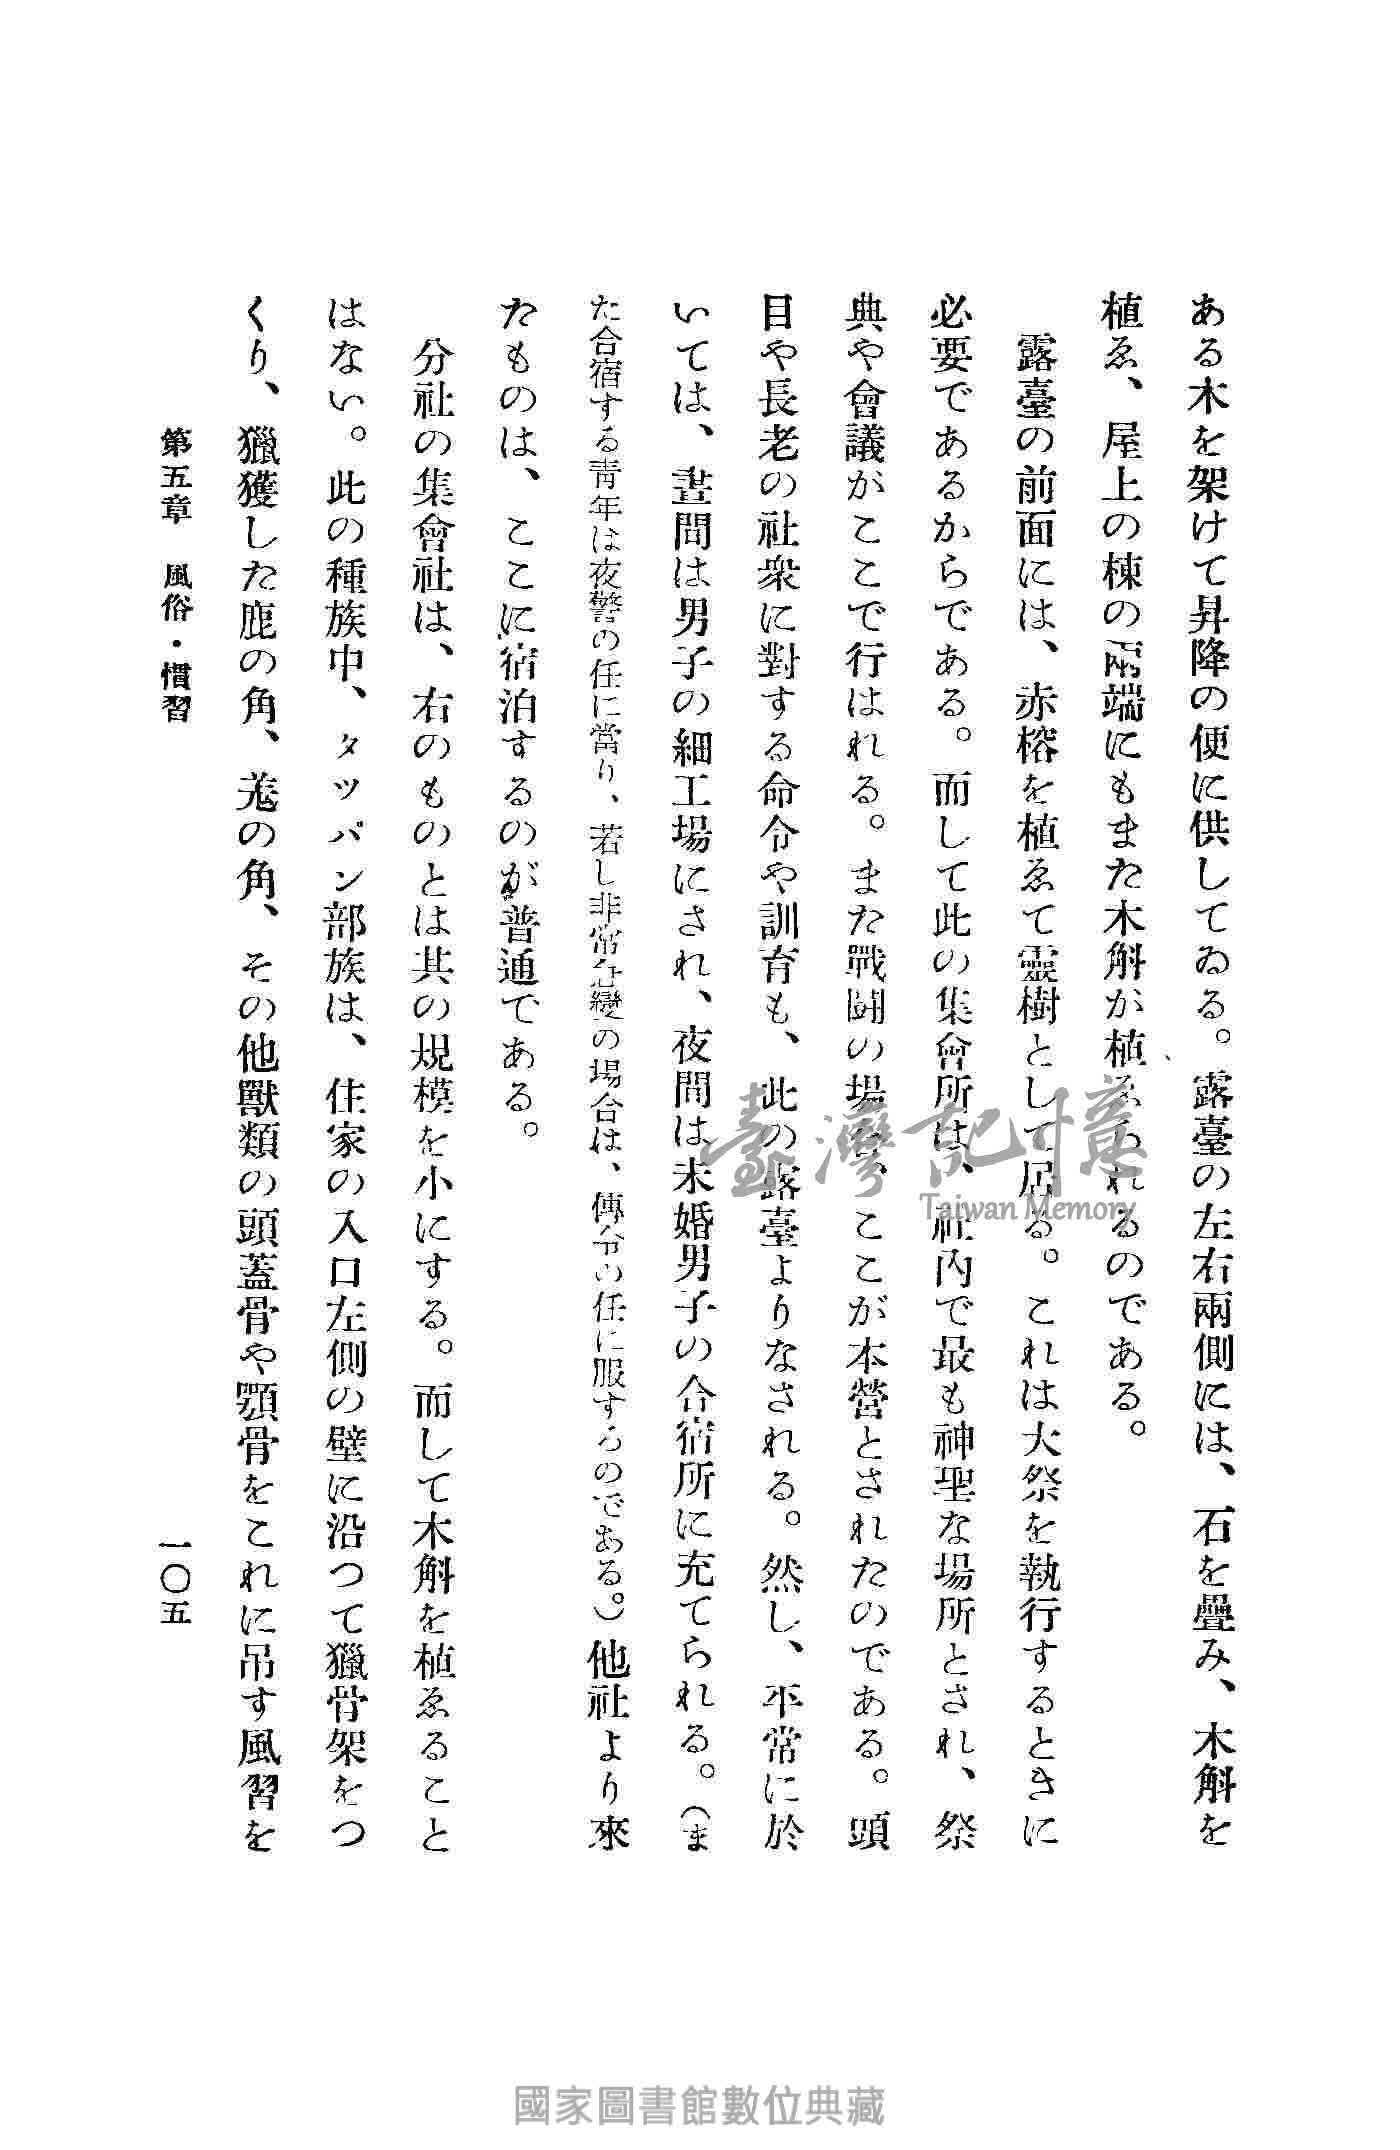 ある木を架けて昇降の便に供してゐる。露臺の左右兩側には、石を疊み、木斛を
植ゑ、屋上の棟の兩端にもまた木斛が植ゑられるのである。
露臺の前面には、赤榕を植ゑて靈樹として居る。これは大祭を執行するときに
必要であるからである。而して此の集會所は、社内で最も神聖な場所とされ、祭
典や會議がここで行はれる。また戰鬪の場合、ここが本營とされたのである。頭
目や長老の社衆に對する命令や訓育も、此の露臺よりなされる。然し、平常に於
いては、晝間は男子の細工場にされ、夜間は未婚男子の合宿所に充てられる。（ま
た合宿する青年は夜警の任に當り、若し非常急變の場合は、傳令の任に服するのである。）他社より來
たものは、ここに宿泊するのが普通である。
分社の集會社は、右のものとは其の規模を小にする。而して木斛を植ゑること
はない。此の種族中、タッバン部族は、住家の入口左側の壁に沿つて獵骨架をつ
くり、獵獲した鹿の角、羌の角、その他獸類の頭蓋骨や顎骨をこれに吊す風習を
第五章　風俗・慣習
一〇五
臺灣記憶
Taiwan Memory
國家圖書館數位典藏